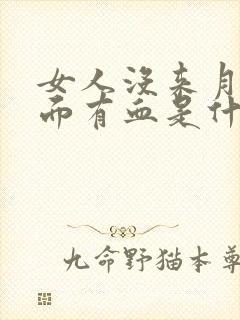 女人没来月
而有血是什
九命野猫本尊